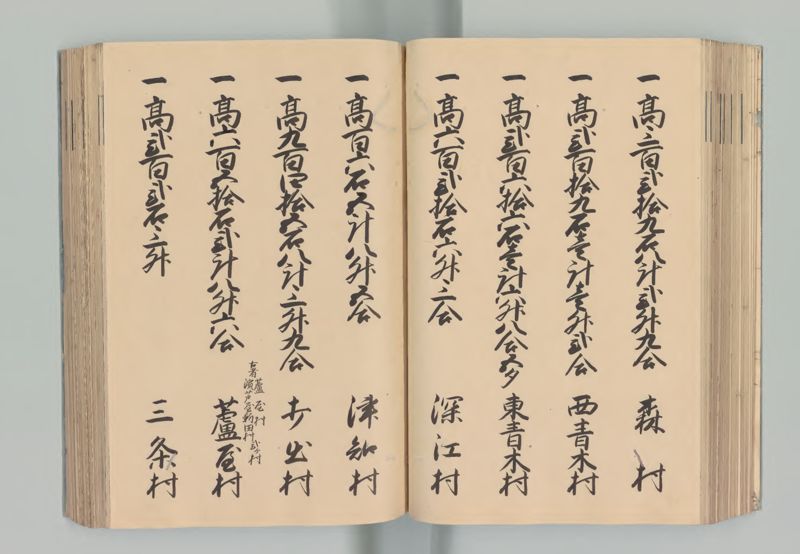 一高三百弐拾九石八斗弐升九合 森村
一高弐百拾九石壱斗壱升弐合 西青木村
一高弐百六拾六石壱斗六升八合五夕 東青木村
一高六百弐拾石六升三合 深江村
一高百六石五斗八升五合 津知村
一高九百四拾五石八斗三升九合 打出村
一高六百五拾石弐斗八升六合 蘆屋村
蘆屋村
濱芦屋新田村
一高弐百弐石三升 三条村